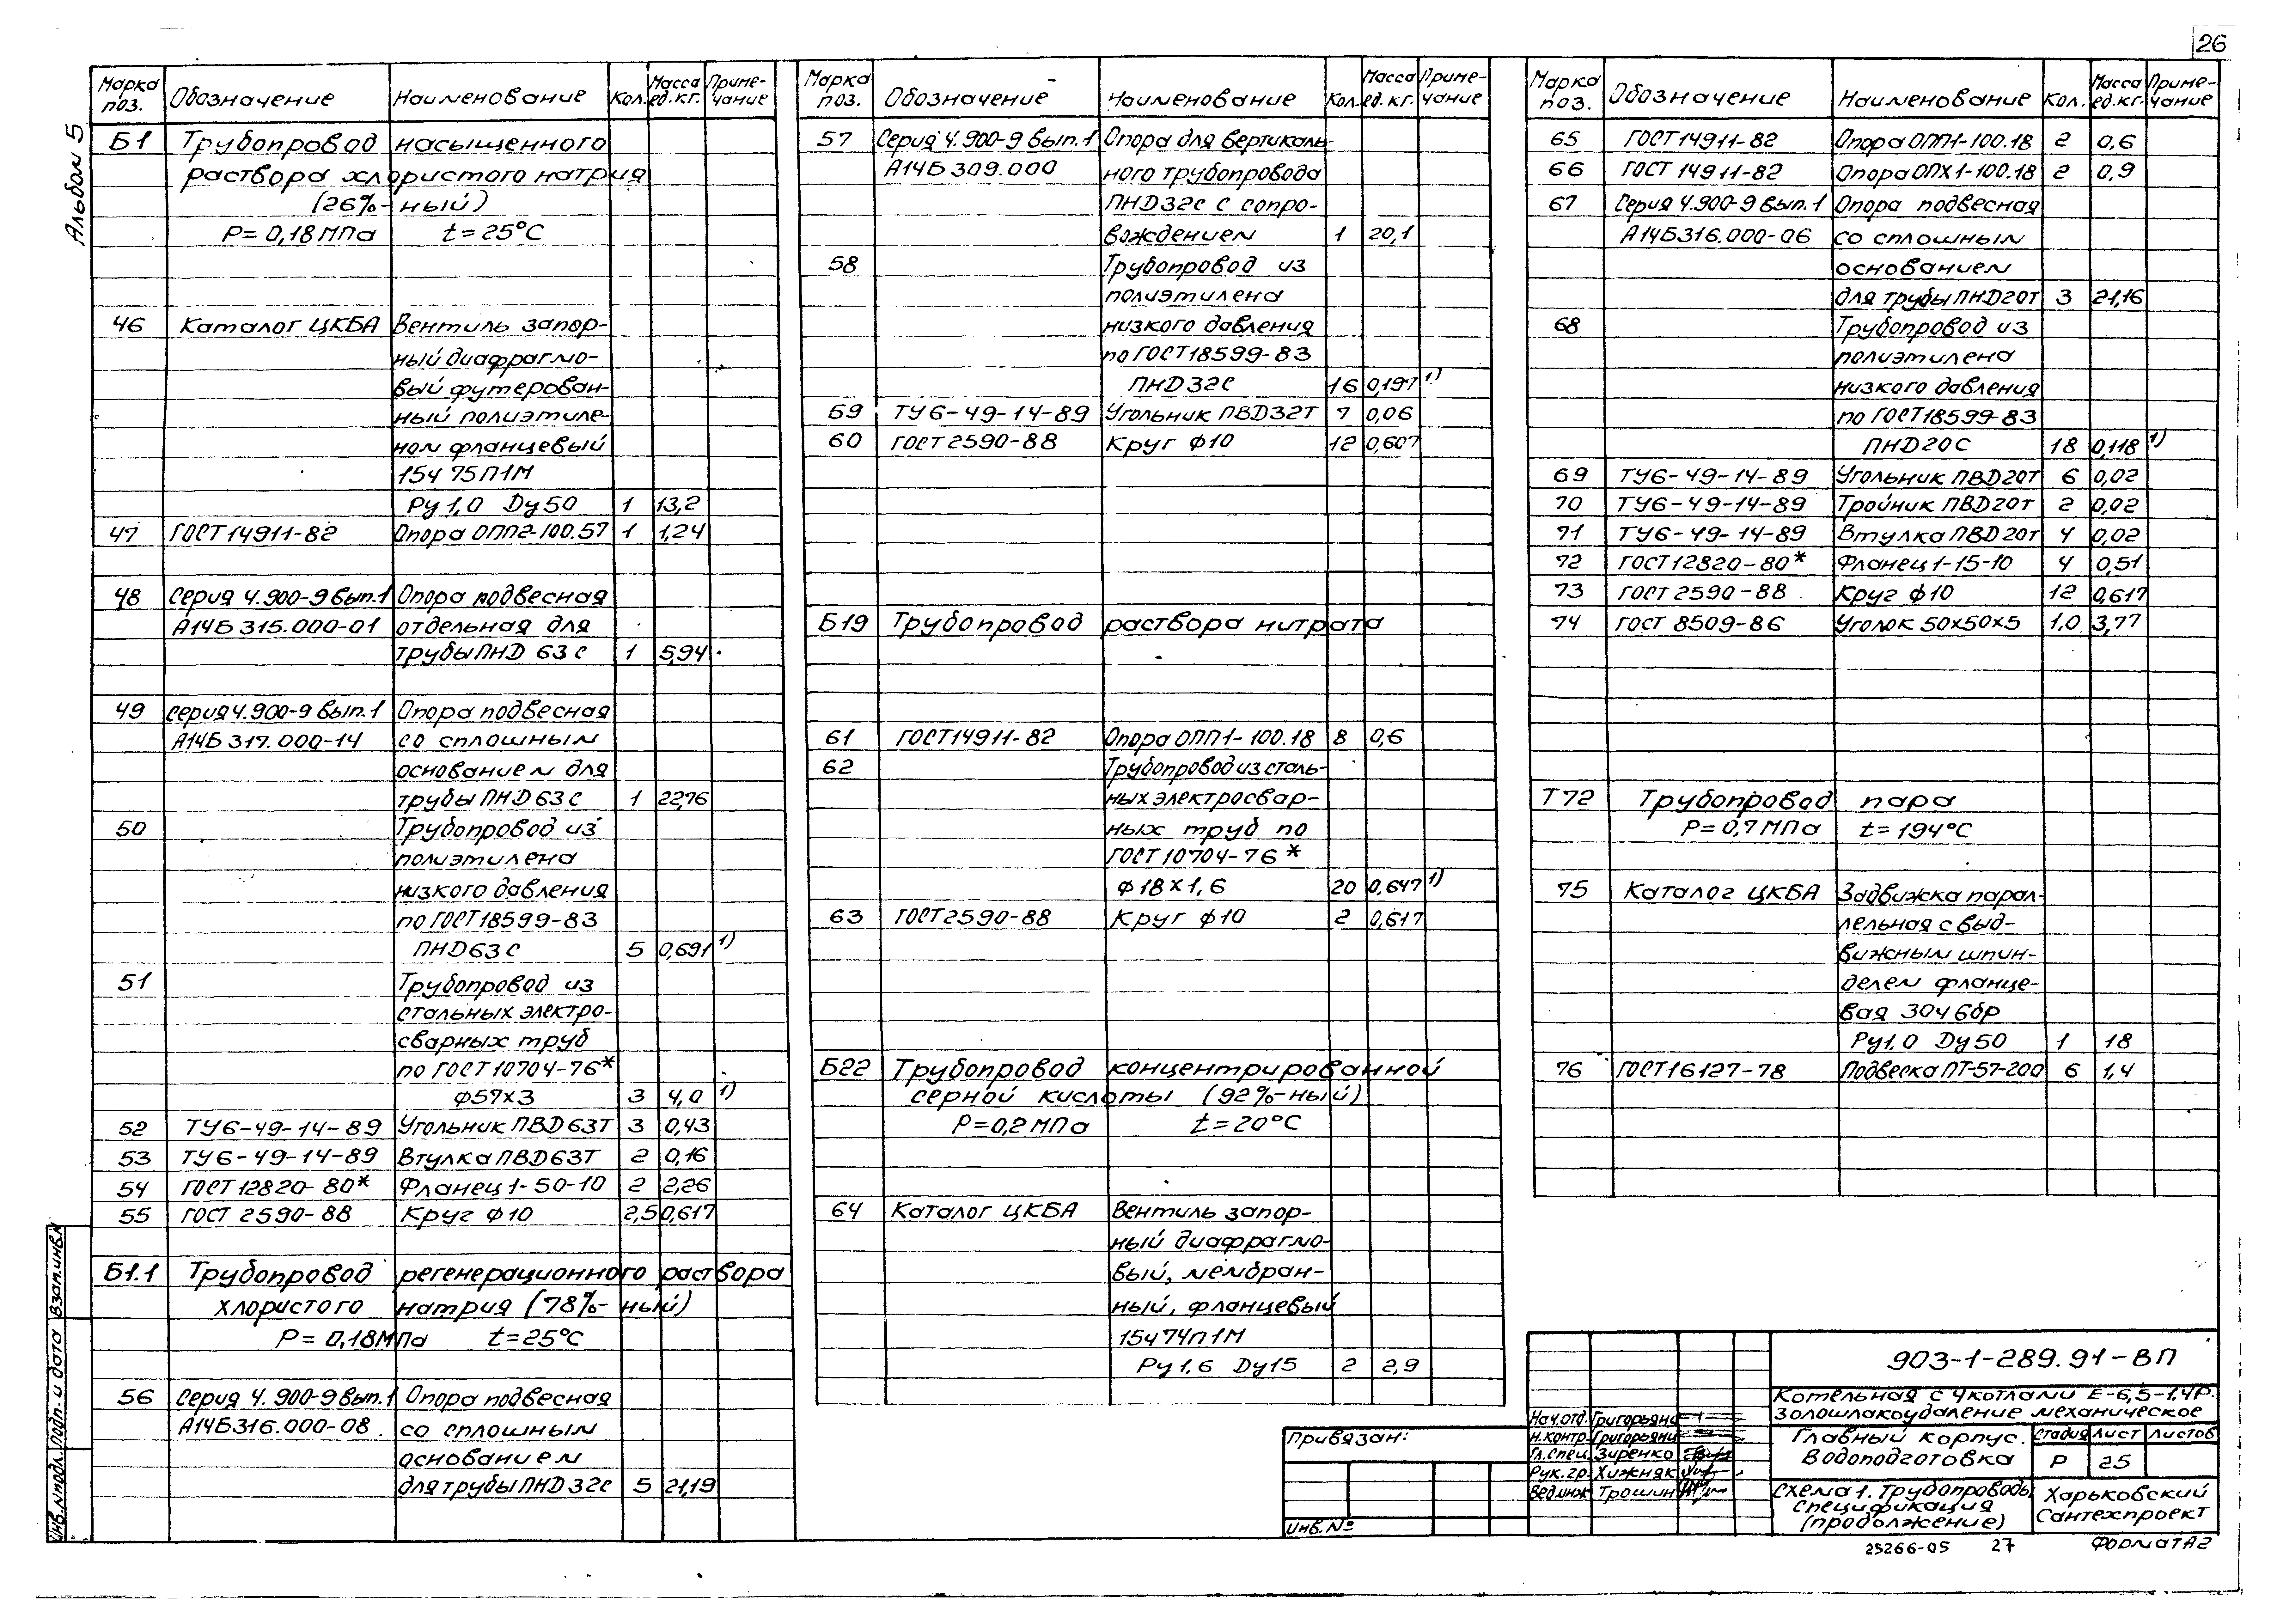 26
Альбом 5
Марка поз. Обозначение Наименование Кол. Масса ед.кг. Приме-чание
Б1 Трубопровод насыщенного
раствора хлористого натрия
(26%-ный)
Р= 0,18МПа t=25°С
46 Каталог ЦКБА Вентиль запор-
ный диафрагмо-
вый футерован-
ный полиэтиле-
ном фланцевый
15ч 75П1М
Ру 1,0 Dу50 1 13,2
47 ГОСТ14911-82 Опора ОПП2-100.57 1 1,24
48 Серия 4.900-9 вып.1 Опора подвесная
А14Б315.000-01 отдельная для
трубы ПНД 63С 1 5,94
49 Серия 4.900-9 вып.1 Опора подвесная
А14Б317.000-14 со сплошным
основанием для
трубы ПНД63С 1 22,76
50 Трубопровод из
полиэтилена
низкого давления
по ГОСТ18599-83
ПНД63С 5 0,691 1)
51 Трубопровод из
стальных электро-
сварных труб
по ГОСТ10704-76*
ф57х3 3 4,0 1)
52 ТУ6-49-14-89 Угольник ПВД63Т 3 0,43
53 ТУ6-49-14-89 Втулка ПВД63Т 2 0,16
54 ГОСТ12820-80* Фланец 1-50-10 2 2,26
55 ГОСТ 2590-88 Круг ф10 2,5 0,617
Б1.1 Трубопровод регенерационного раствора
хлористого натрия (78%-ный)
Р= 0,18МПа t=25°С
56 Серия 4.900-9 вып.1 Опора подвесная
А14Б316.000-08 со сплошным
основанием
для трубы ПНД32С 5 21,19
Марка поз. Обозначение Наименование Кол. Масса ед.кг. Приме-чание
57 Серия 4.900-9 вып.1 Опора для вертикаль-
А14Б309.000 ного трубопровода
ПНД32С с сопро-
вождением 1 20,1
58 Трубопровод из
полиэтилена
низкого давления
по ГОСТ18599-83
ПНД32С 16 0,197 1)
59 ТУ6-49-14-89 Угольник ПВД32Т 7 0,06
60 ГОСТ2590-88 Круг ф10 12 0,607
Б19 Трубопровод раствора нитрата
61 ГОСТ14911-82 Опора ОПП1-100.18 8 0,6
62 Трубопровод из сталь-
ных электросвар-
ных труб по
ГОСТ10704-76*
ф18х1,6 20 0,647 1)
63 ГОСТ2590-88 Круг ф10 2 0,617
Б22 Трубопровод концентрированной
серной кислоты (92%-ный)
Р=0,2МПа t=20°С
64 Каталог ЦКБА Вентиль запор-
ный диафрагмо-
вый, мембран-
ный, фланцевый
15ч74п1М
Ру1,6 Dу15 2 2,9
Марка поз. Обозначение Наименование Кол. Масса ед.кг. Приме-чание
65 ГОСТ14911-82 Опора ОПП1-100.18 2 0,6
66 ГОСТ 14911-82 Опора ОПХ1-100.18 2 0,9
67 Серия 4.900-9 вып.1 Опора подвесная
А14Б316.000-06 со сплошным
основанием
для трубы ПНД20Т 3 21,16
68 Трубопровод из
полиэтилена
низкого давления
по ГОСТ18599-83
ПНД20С 18 0,118 1)
69 ТУ6-49-14-89 Угольник ПВД20Т 6 0,02
70 ТУ6-49-14-89 Тройник ПВД20Т 2 0,02
71 ТУ6-49-14-89 Втулка ПВД20Т 4 0,02
72 ГОСТ12820-80* Фланец 1-15-10 4 0,51
73 ГОСТ 2590-88 Круг ф10 12 0,617
74 ГОСТ 8509-86 Уголок 50х50х5 1,0 3,77
Т72 Трубопровод пара
Р=0,7МПа t=194°С
75 Каталог ЦКБА Задвижка парал-
лельная с выд-
вижным шпин-
делем фланце-
вая 30ч6бр
Ру1,0 Dу50 1 18
76 ГОСТ16127-78 Подвеска ПТ-57-200 6 1,4
903-1-289.91-ВП
Котельная с 4котлами Е-6,5-1,4Р.
Золошлакоудаление механическое
Нач.отд. Григорьянц
Н.контр. Григорьянц
Гл.спец. Зиренко
Рук.гр. Хижняк
Вед.инж Трошин
Главный корпус.
Водоподготовка
Стадия Лист Листов
Р 25
Схема 1. Трубопроводы
Спецификация
(продолжение)
Харьковский
Сантехпроект
Привязан:
Инв.№
Инв.№подл. Подп. и дата Взам.инв.№
25266-05 27 Формат А2